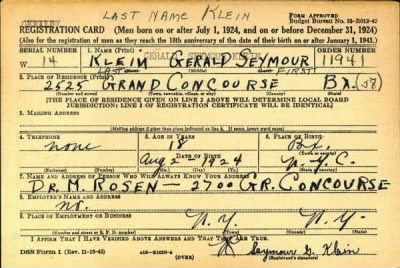 LAST NAME KLEIN
FORM APPROVED
Budget Bureau No. 33-R012-42
REGISTRATION CARD (Men born on or after July 1, 1924, and on or before December 31, 1924)
(Also for the registration of men as they reach the 18th anniversary of the date of their birth on or after January 1, 1943.)
SERIAL NUMBER 1. NAME (Print) ORDER NUMBER
W 14 KLEIN GERALD SEYMOUR 11941
LAST FIRST
2. PLACE OF RESIDENCE (Print)
2525 GRAND CONCOURSE BX. (58)
[THE PLACE OF RESIDENCE GIVEN ON LINE 2 ABOVE WILL DETERMINE LOCAL BOARD
JURISDICTION; LINE 2 OF REGISTRATION CERTIFICATE WILL BE IDENTICAL]
3. MAILING ADDRESS
[Mailing address if other than place indicated on line 2. If same, insert word same]
4. TELEPHONE 5. AGE IN YEARS 6. PLACE OF BIRTH
none 18 Bx.
DATE OF BIRTH
Aug 2 1924 N.Y.C.
7. NAME AND ADDRESS OF PERSON WHO WILL ALWAYS KNOW YOUR ADDRESS
DR. M. ROSEN — 2700 GR. CONCOURSE
8. EMPLOYER'S NAME AND ADDRESS
no.
9. PLACE OF EMPLOYMENT OR BUSINESS
N.Y. N.Y.
I AFFIRM THAT I HAVE VERIFIED ABOVE ANSWERS AND THAT THEY ARE TRUE.
DSS Form 1 (Rev. 11-16-42) (OVER) Seymour G. Klein
(Registrant's signature)